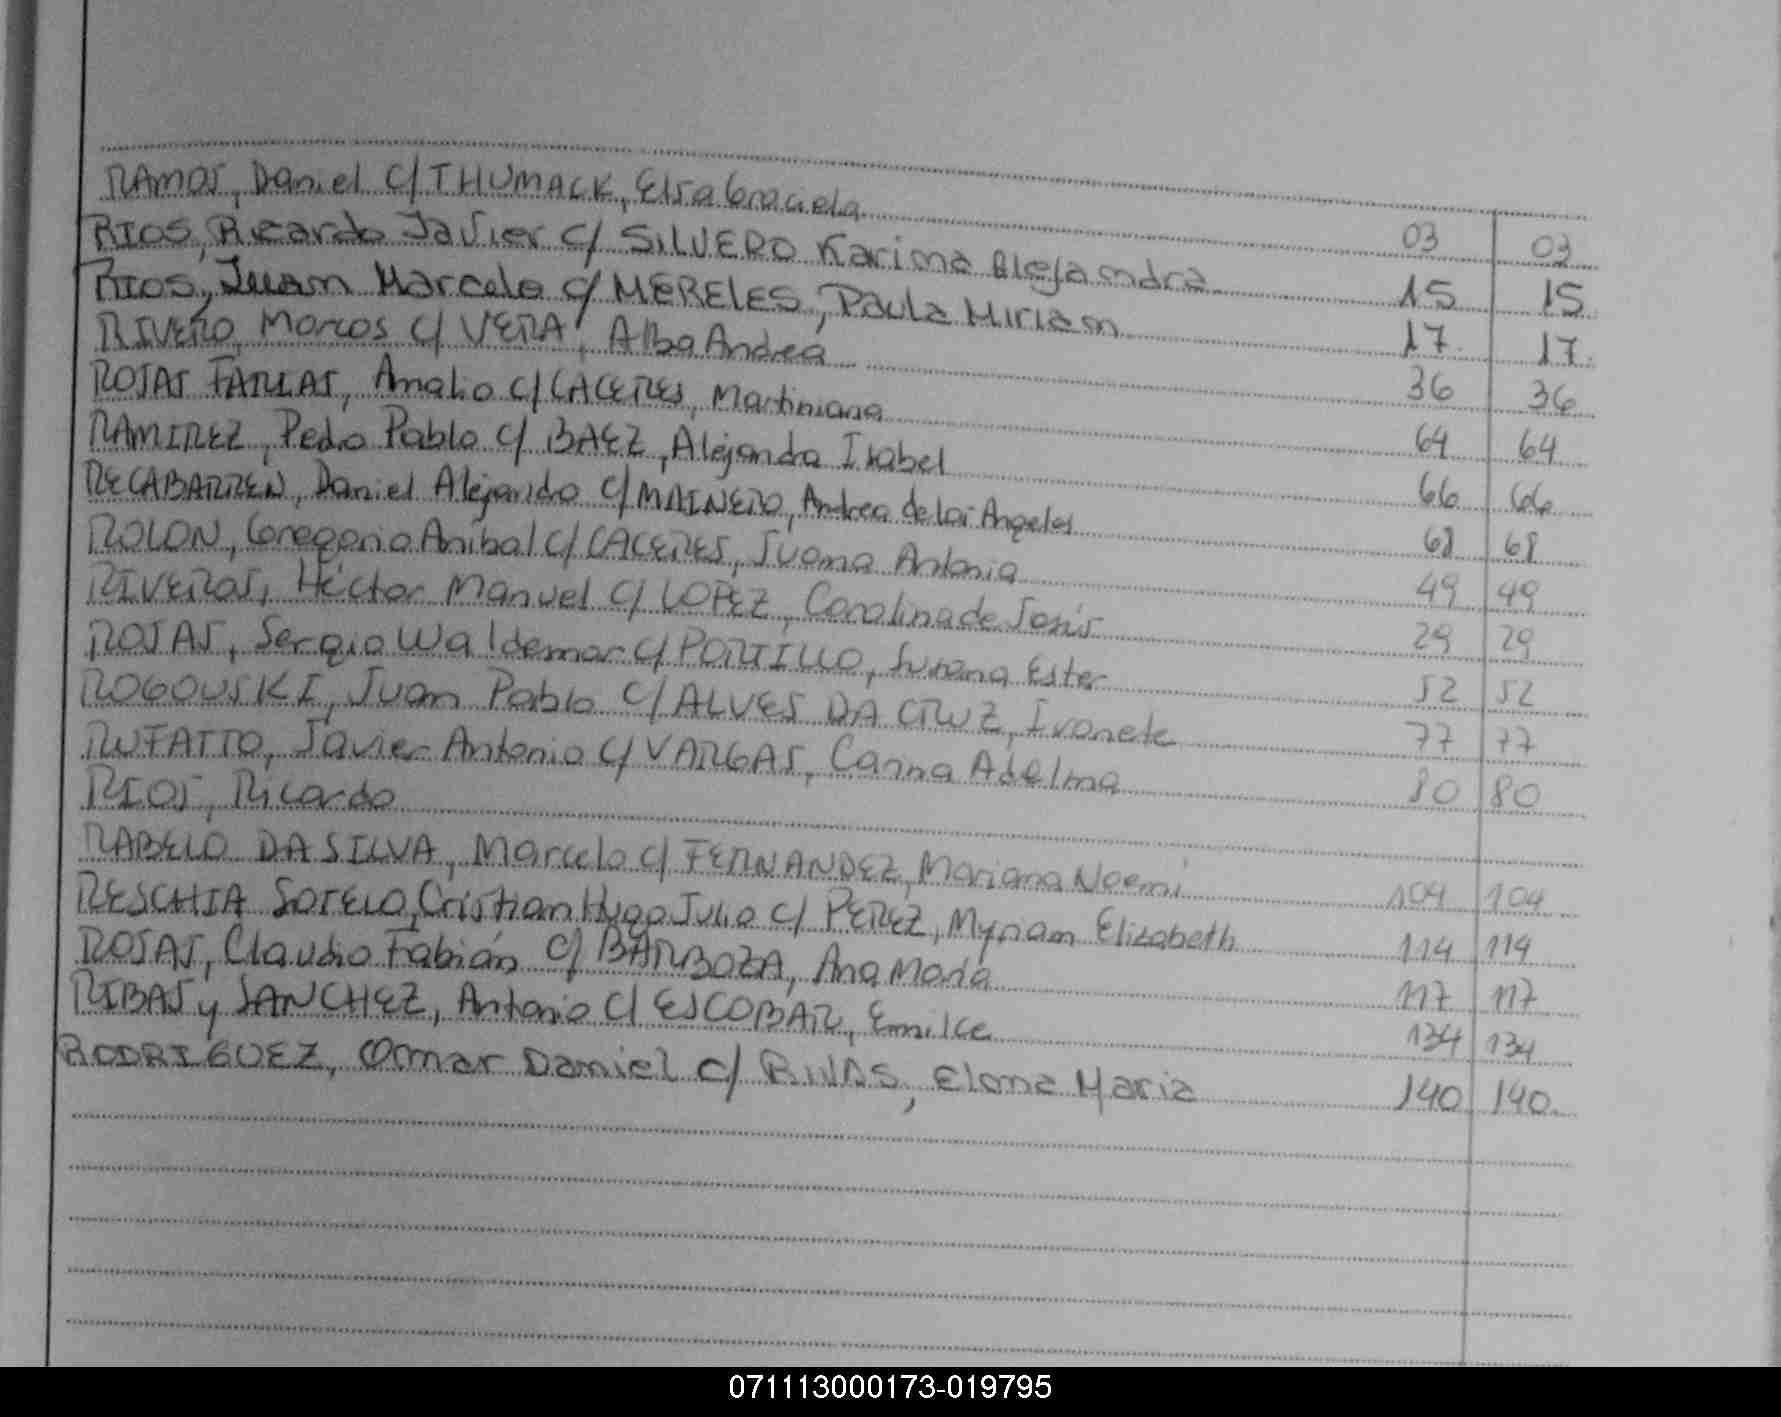 RAMOS, Daniel c/ THUMACK, Elsa Graciela 03 03
RIOS, Ricardo Javier c/ SILVERO Karina Alejandra 15 15
RIOS, Juan Marcelo c/ MERELES, Paula Miriam 17 17
RIVERO, Marcos c/ VERA, Alba Andrea 36 36
ROJAS FARIAS, Amalio c/ CACERES, Martiniana 64 64
RAMIREZ, Pedro Pablo c/ BAEZ, Alejandra Isabel 66 66
RECABARREN, Daniel Alejandro c/ MAINERO, Andrea de los Angeles 68 68
ROLON, Gregorio Anibal c/ CACERES, Juana Antonia 49 49
RIVEROS, Héctor Manuel c/ LOPEZ, Carolina de Jesús 29 29
ROJAS, Sergio Waldemar c/ PORTILLO, Susana Ester 52 52
ROGOWSKI, Juan Pablo c/ ALVES DA CRUZ, Ivonete 77 77
RUFATTO, Javier Antonio c/ VARGAS, Carina Adelma 80 80
RIOS, Ricardo
RABELO DA SILVA, Marcelo c/ FERNANDEZ, Mariana Noemi 104 104
RESCHIA SOTELO, Cristian Hugo Julio c/ PEREZ, Myriam Elizabeth 114 114
ROJAS, Claudio Fabián c/ BARBOZA, Ana María 117 117
RIBAS y SANCHEZ, Antonio c/ ESCOBAR, Emilce 134 134
RODRIGUEZ, Omar Daniel c/ RIVAS, Elena Maria 140 140
071113000173-019795